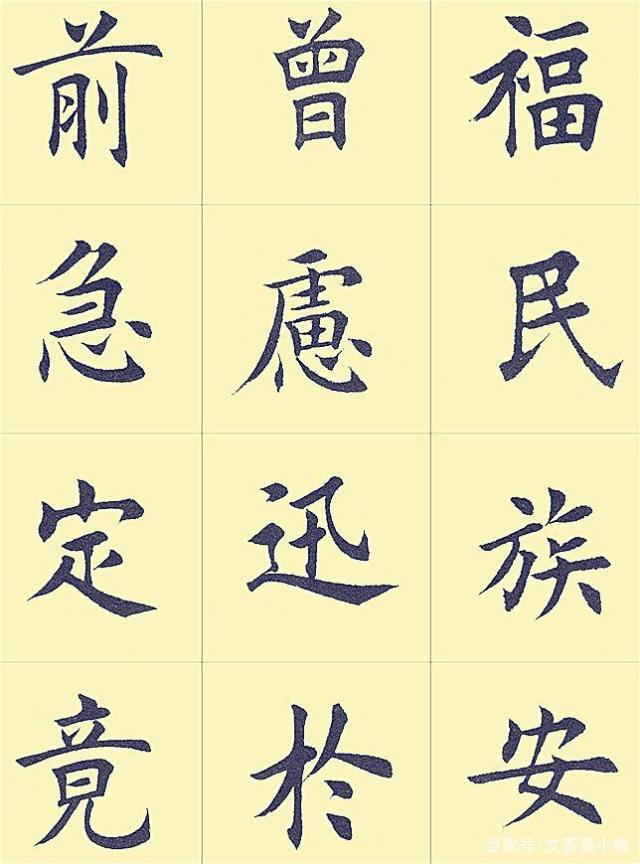 福民族安
曾慮迅於
前急定竟
百家号/文荟斋小楷